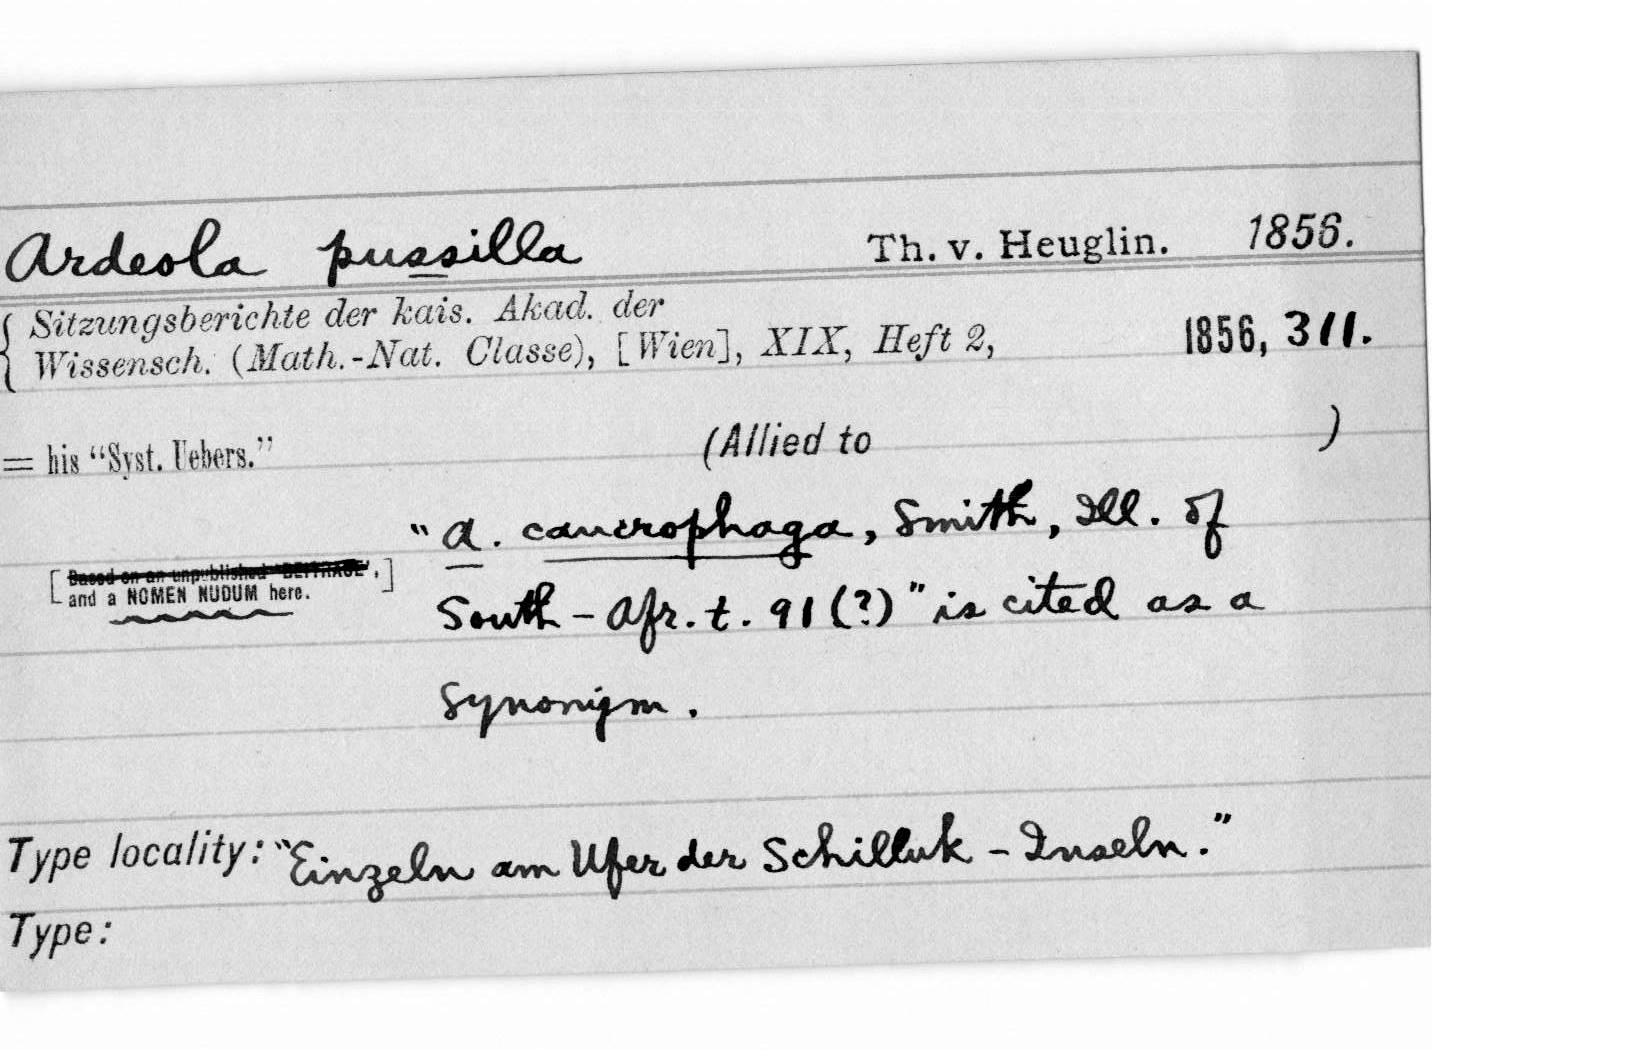 Ardeola pussilla Th. v. Heuglin. 1856.
{ Sitzungsberichte der kais. Akad. der
Wissensch. (Math.-Nat. Classe), [Wien], XIX, Heft 2, 1856, 311.
= his "Syst. Uebers." (Allied to )
"A. cancrophaga, Smith, Ill. of
[Based on an unpublished "BEITRÄGE",]
and a NOMEN NUDUM here.
South-Afr. t. 91 (?)" is cited as a
synonym.
Type locality: "Einzeln am Ufer der Schilluk-Inseln."
Type: